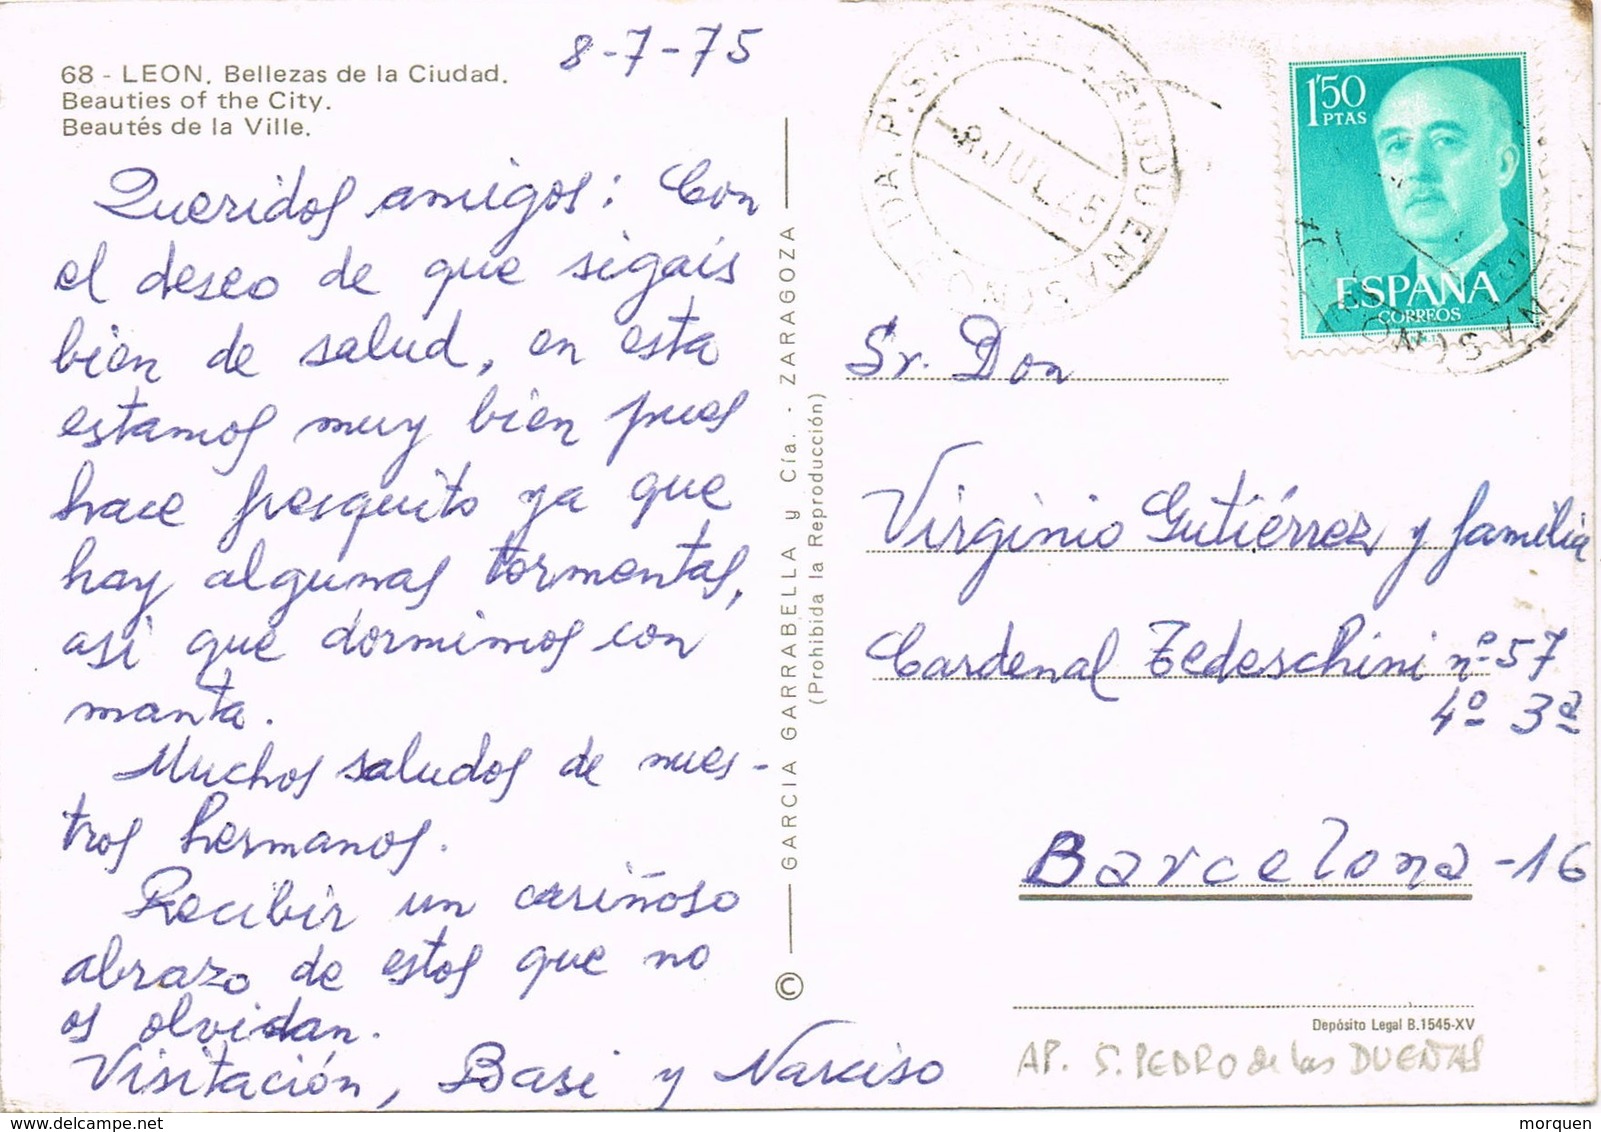 8-7-75
68 - LEON. Bellezas de la Ciudad.
Beauties of the City.
Beautés de la Ville.
Queridos amigos: Con
el deseo de que sigais
bien de salud, en esta
estamos muy bien pues
hace fresquito ya que
hay algunas tormentas,
asi que dormimos con
manta.
Muchos saludos de nues-
tros hermanos.
Recibir un cariñoso
abrazo de estos que no
os olvidan.
Visitación, Basi y Narciso
GARCIA GARRABELLA y Cía. - ZARAGOZA
(Prohibida la Reproducción)
©
8 JUL 75
1'50
PTAS
ESPAÑA
CORREOS
Sr. Don
Virginio Gutiérrez y familia
Cardenal Tedeschini nº 57
4º 3ª
Barcelona-16
Depósito Legal B.1545-XV
AP. S. PEDRO de las DUEÑAS
morquen